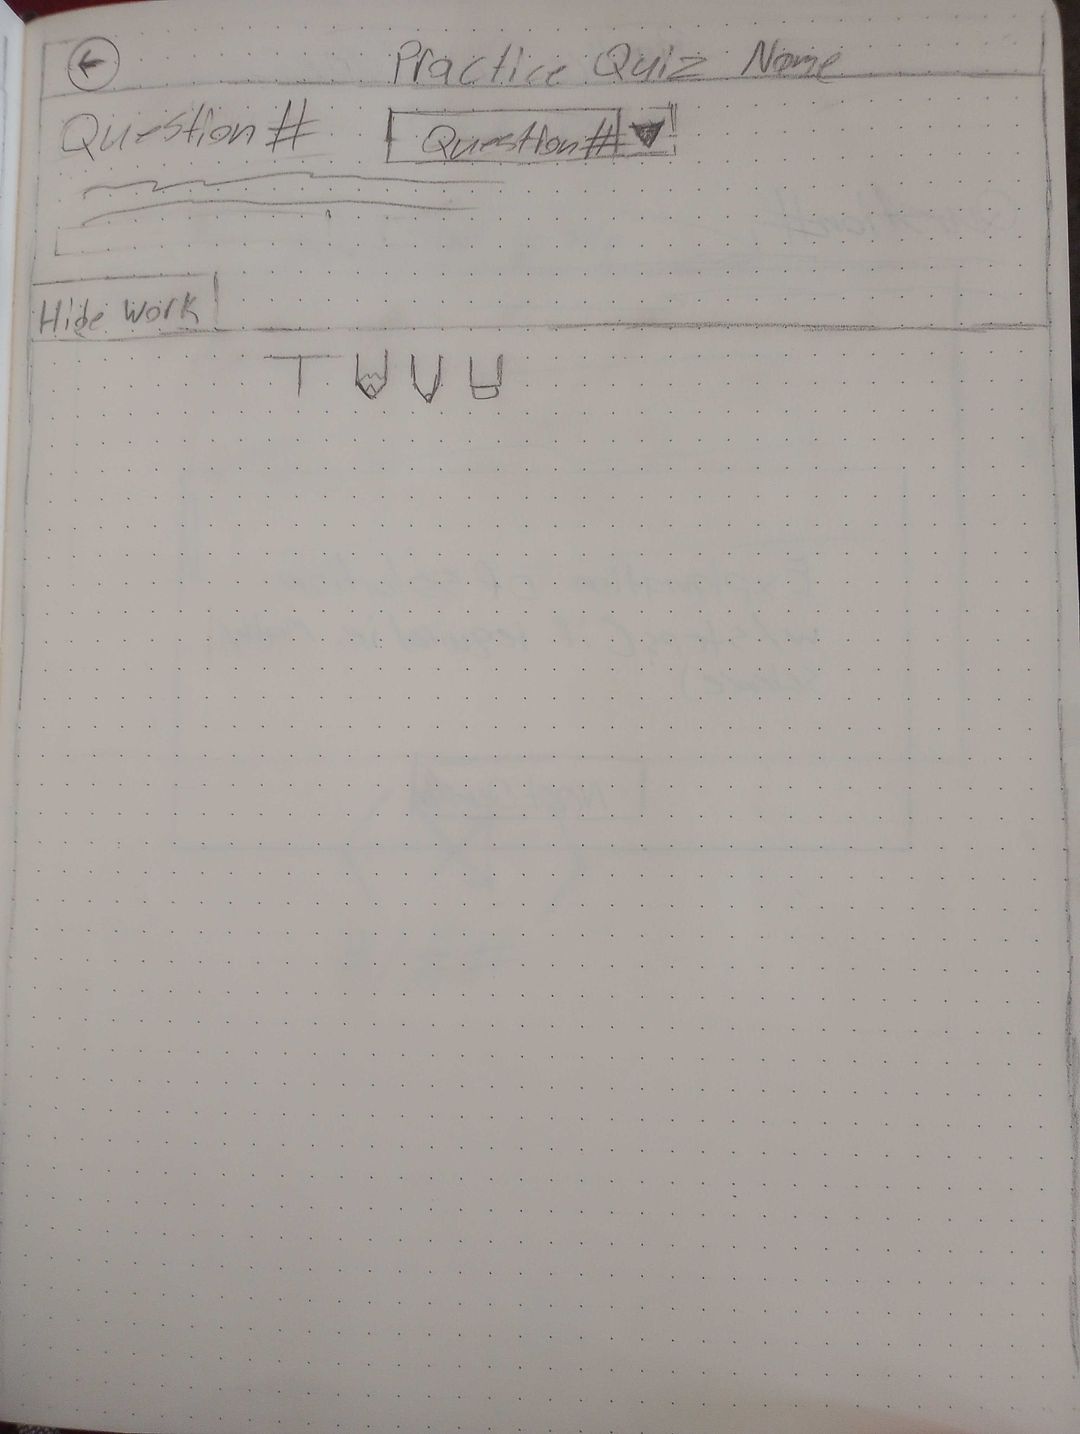 Practice Quiz Name
Question #
Question #
Hide Work
T